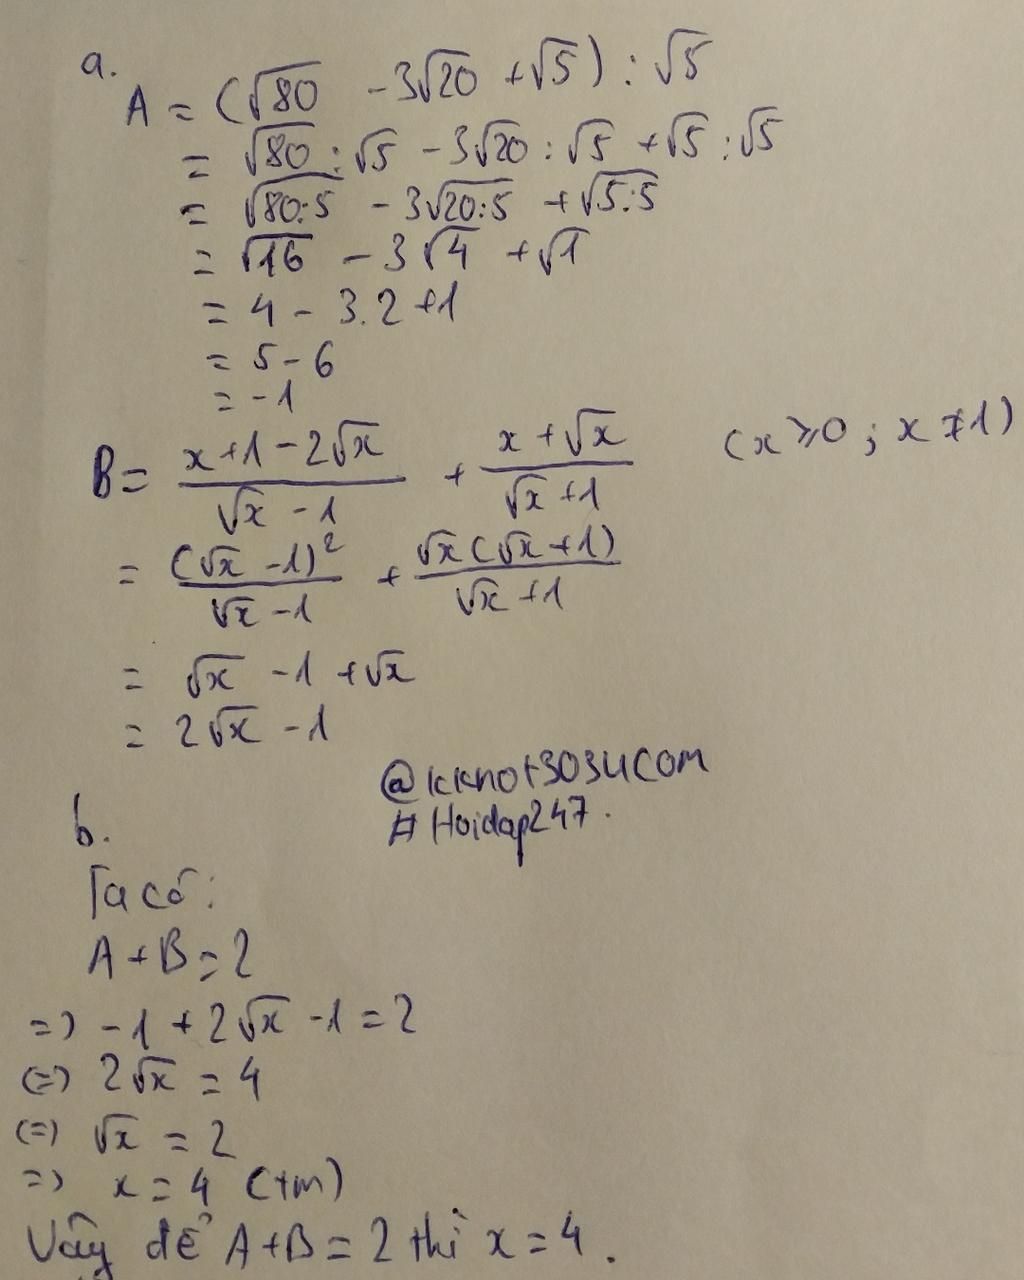 a.
A = (√80 - 3√20 + √5) : √5
= √80 : √5 - 3√20 : √5 + √5 : √5
= √80:5 - 3√20:5 + √5:5
= √16 - 3√4 + √1
= 4 - 3.2 + 1
= 5 - 6
= -1
B = (x + 1 - 2√x)/(√x - 1) + (x + √x)/(√x + 1) (x ⩾ 0 ; x ≠ 1)
= (√x - 1)²/(√x - 1) + √x(√x + 1)/(√x + 1)
= √x - 1 + √x
= 2√x - 1
@kknot3034com
# Hoidap247.
b.
Ta có:
A + B = 2
=> -1 + 2√x - 1 = 2
(=) 2√x = 4
(=) √x = 2
=> x = 4 (tm)
Vậy để A + B = 2 thì x = 4.